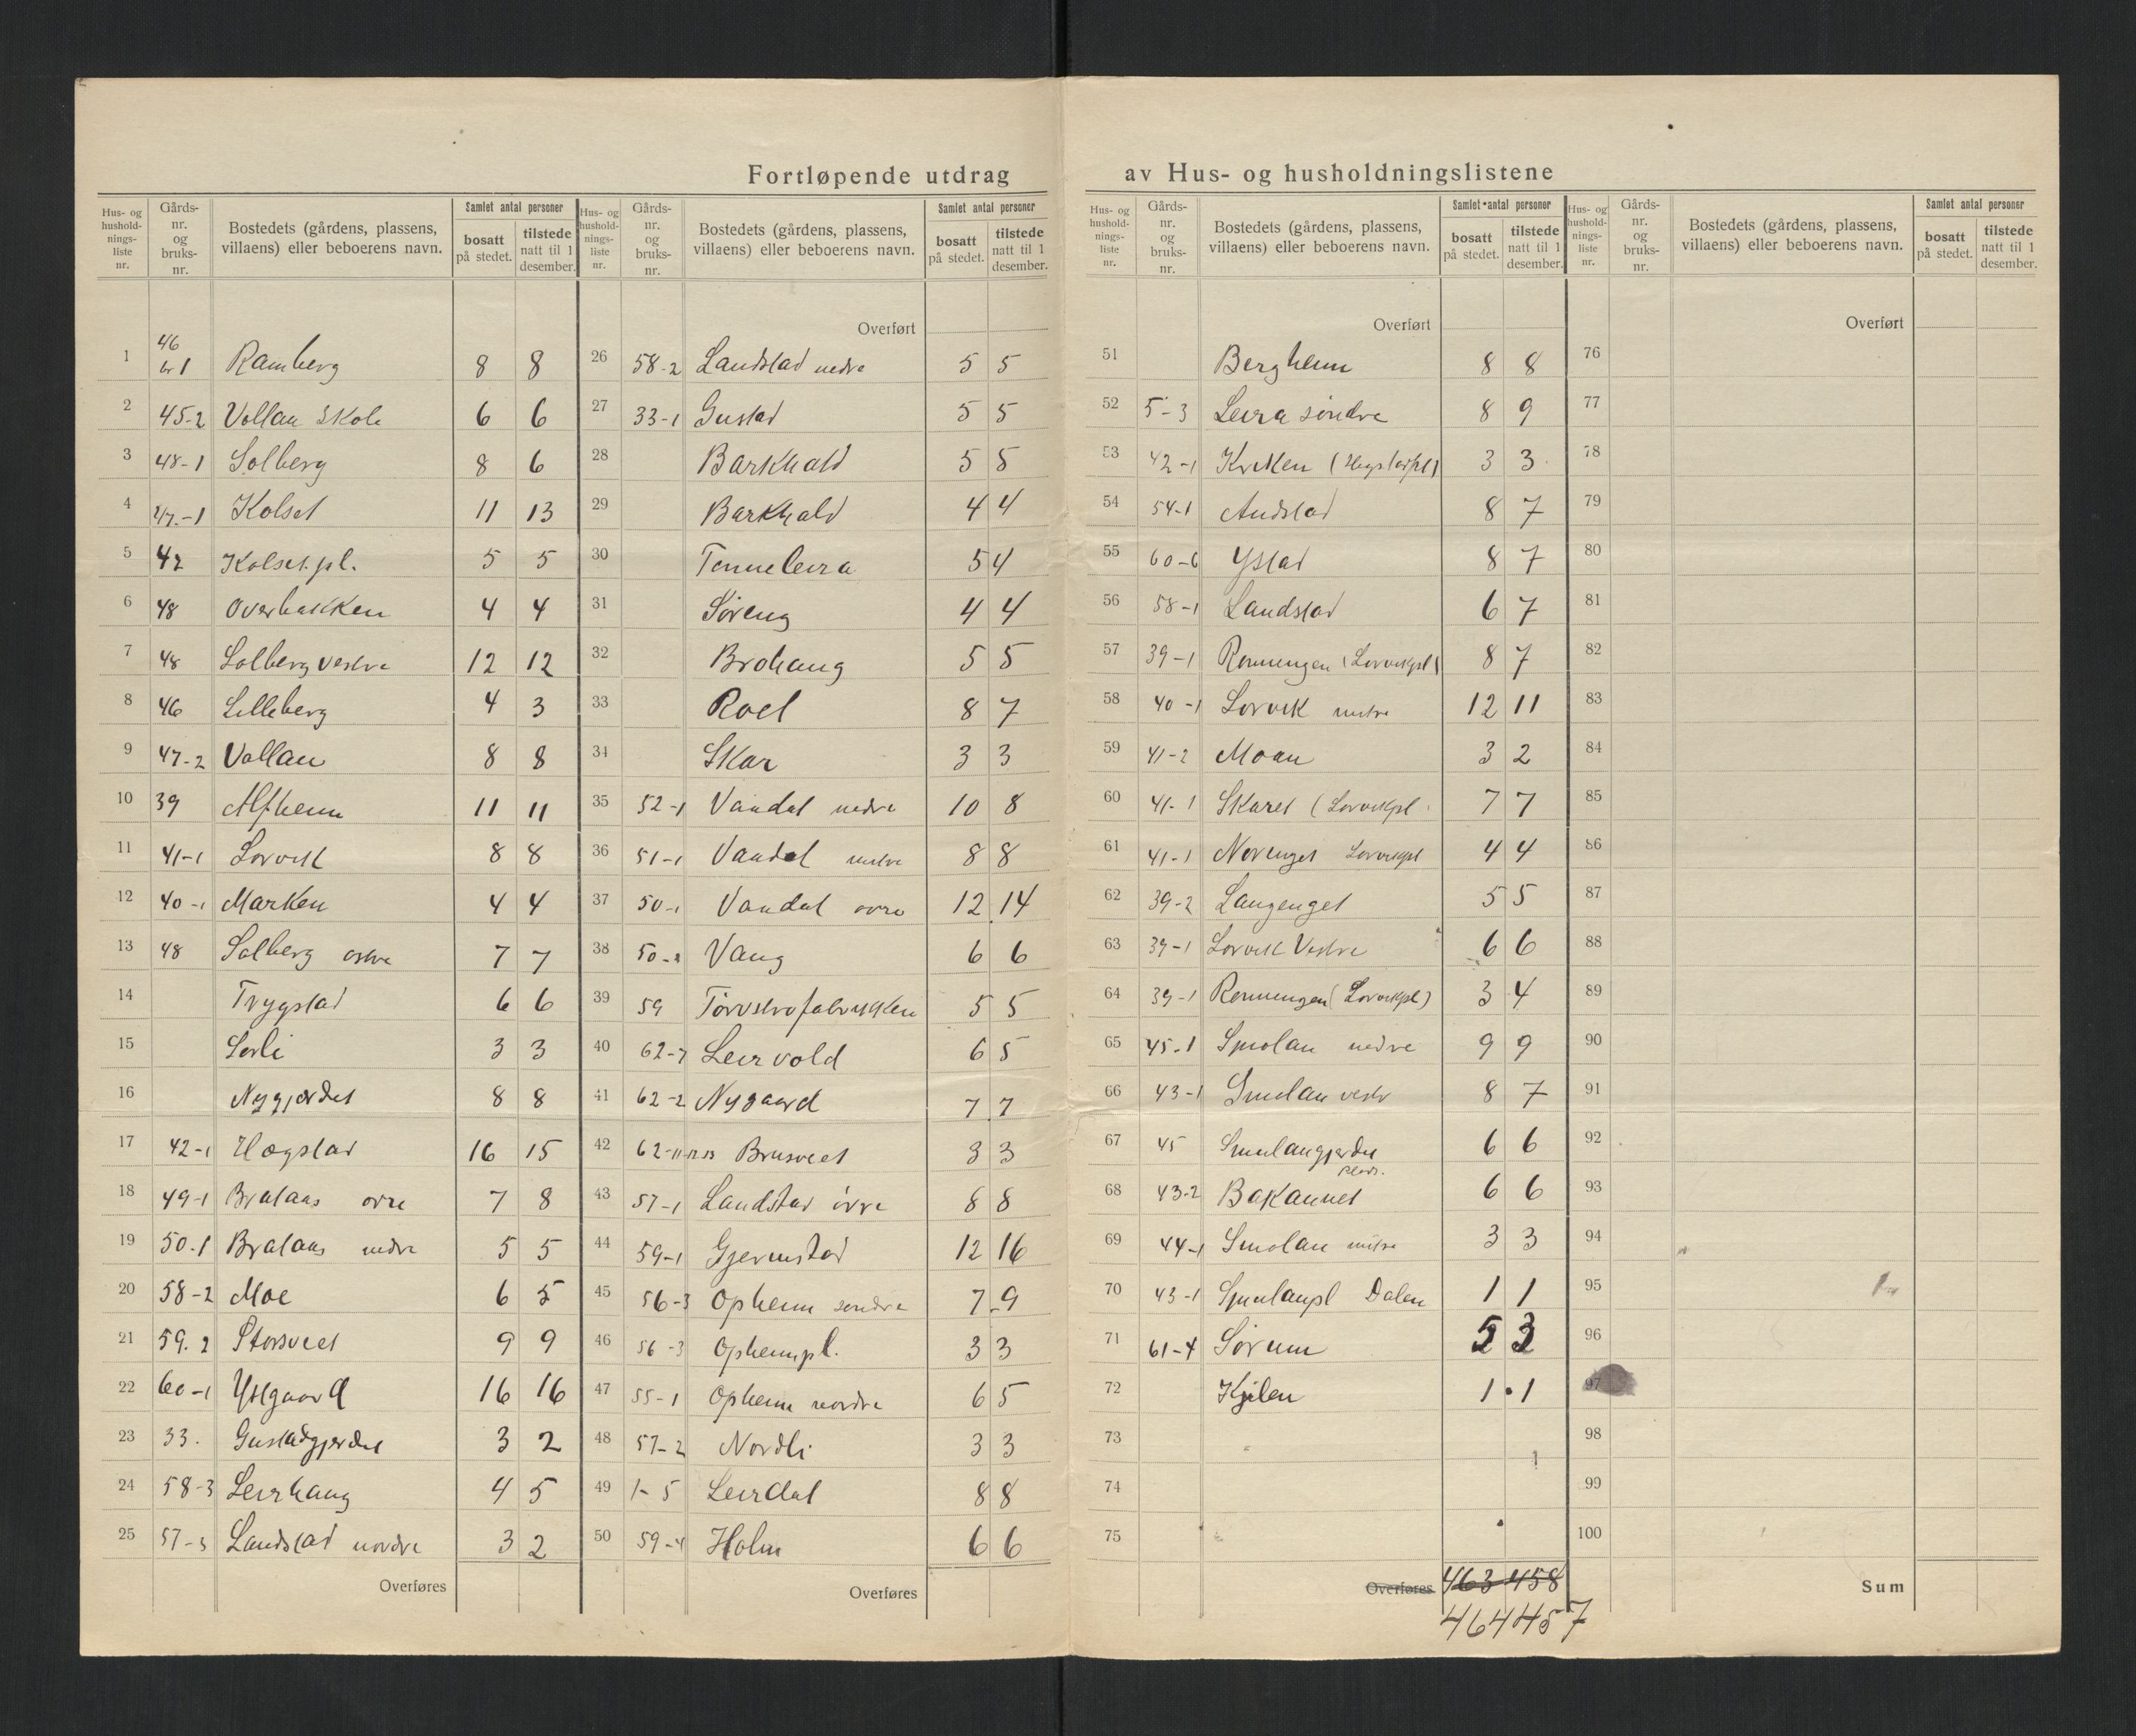 Fortløpende utdrag av Hus- og husholdningslistene
Hus- og hushold-nings-liste nr. | Gårds-nr. og bruks-nr. | Bostedets (gårdens, plassens, villaens) eller beboerens navn. | Samlet antal personer | bosatt på stedet. | tilstede natt til 1 desember.
1 46 br 1 Ramberg 8 8
2 45-2 Vollan Skole 6 6
3 48-1 Solberg 8 6
4 47-1 Kolset 11 13
5 47 Kolset.pl. 5 5
6 48 Overbakken 4 4
7 48 Solberg vestre 12 12
8 46 Lilleberg 4 3
9 47-2 Vollan 8 8
10 39 Alfheim 11 11
11 41-1 Lorvik 8 8
12 40-1 Marken 4 4
13 48 Solberg østre 7 7
14 Trygstad 6 6
15 Sørli 3 3
16 Nygjerdet 8 8
17 42-1 Hægstad 16 15
18 49-1 Bralaas øvre 7 8
19 50-1 Bralaas nedre 5 5
20 58-2 Moe 6 5
21 59.2 Storsveet 9 9
22 60-1 Ystgaard 16 16
23 33. Gustadgjerdet 3 2
24 58-3 Leirhaug 4 5
25 57-3 Landstad nordre 3 2
Overføres
Hus- og hushold-nings-liste nr. | Gårds-nr. og bruks-nr. | Bostedets (gårdens, plassens, villaens) eller beboerens navn. | Samlet antal personer | bosatt på stedet. | tilstede natt til 1 desember.
Overført
26 58-2 Landstad nedre 5 5
27 33-1 Gustad 5 5
28 Barkhald 5 5
29 Barkhald 4 4
30 Tønneleira 5 4
31 Søreng 4 4
32 Brohaug 5 5
33 Roel 8 7
34 Skar 3 3
35 52-1 Vandal nedre 10 8
36 51-1 Vandal mitre 8 8
37 50-1 Vandal øvre 12 14
38 50-2 Vang 6 6
39 59 Torvstrøfabrikken 5 5
40 62-7 Leirvold 6 5
41 62-2 Nygaard 7 7
42 62-11 Brusveet 3 3
43 57-1 Landstad øvre 8 8
44 59-1 Gjermstad 12 16
45 56-3 Opheim søndre 7 9
46 56-3 Opheimpl. 3 3
47 55-1 Opheim nordre 6 5
48 57-2 Nordli 3 3
49 1-5 Leirdal 8 8
50 59-4 Holm 6 6
Overføres
Hus- og hushold-nings-liste nr. | Gårds-nr. og bruks-nr. | Bostedets (gårdens, plassens, villaens) eller beboerens navn. | Samlet antal personer | bosatt på stedet. | tilstede natt til 1 desember.
Overført
51 Bergheim 8 8
52 5-3 Leira søndre 8 9
53 42-1 Kvilen (Hegstadpl) 3 3
54 54-1 Audstad 8 7
55 60-6 Ystad 8 7
56 58-1 Landstad 6 7
57 39-1 Rønningen (Lorvikpl) 8 7
58 40-1 Lorvik mitre 12 11
59 41-2 Moan 3 2
60 41-1 Skaret (Lorvikpl. 7 7
61 41-1 Norenget Lorvikpl 4 4
62 39-2 Langenget 5 5
63 39-1 Lorvik Vestre 6 6
64 39-1 Rønningen (Lorvikpl) 3 4
65 45-1 Smolan nedre 9 9
66 43-1 Smolan vestr 8 7
67 45 Smulangjerdet plads. 6 6
68 43-2 Bakaunet 6 6
69 44-1 Smolan mitre 3 3
70 43-1 Smulanpl Dalen 1 1
71 61-4 Sørum 5 3
72 Kjilen 1 1
73
74
75
Overføres 463 458
464 457
Hus- og hushold-nings-liste nr. | Gårds-nr. og bruks-nr. | Bostedets (gårdens, plassens, villaens) eller beboerens navn. | Samlet antal personer | bosatt på stedet. | tilstede natt til 1 desember.
Overført
76
77
78
79
80
81
82
83
84
85
86
87
88
89
90
91
92
93
94
95
96
97
98
99
100
Sum